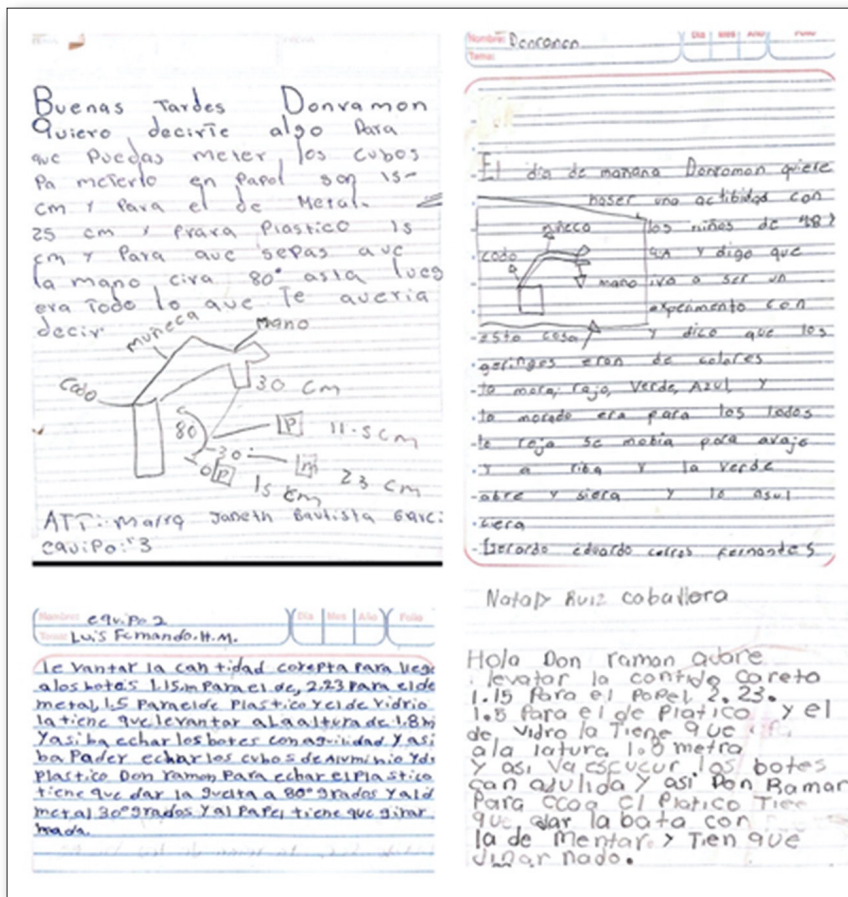 Buenas Tardes Donramon
Quiero decirte algo Para
que Puedas meter los cubos
Pa meterlo en Papel son 15
cm y Para el de Metal
25 cm y Prara Plastico 15
cm y Para que sepas que
la mano cira 80° asta lueg
era Todo lo que Te queria
decir
muñeca
mano
codo
30 cm
80
P 11.5 cm
30
m 23 cm
0 P 15 cm
ATT: Janeth Bautista Garc
equipo: 3
Nombre: Donramon
Día Mes Año Folio
Tema:
El dia de mañana Donramon quiere
haser una actibidad con
los niños de
4A y digo que
muñeca
codo
mano
iva a ser un
experimento con
esta cosa y dico que los
geringes eran de colores
la mora, rojo, Verde, Azul, y
la morado era para los lados
la roja se mobia para avajo
y a riba y la verde
abre y siera y la asul
siera
Gerardo eduardo
Nombre: equipo 2
Día Mes Año Folio
Tema: Luis Fernando. H.M.
Le vantar la can tidad corepta Para llega
alos botes 1.15m Para el de, 2.23 Para el de
metal, 1.5 Para el de Plastico y el de Vidrio
la tiene que levantar ala altura de 1.8 m
Y asi ba echar los botes con aguilidad Y asi
ba Pader echar los cubos de Aluminio Yde
Plastico Don ramon Para echar el Plastico
tiene que dar la guelta a 80° grados Y al d
metal 30° grados Y al Papel tiene que girar
nada.
Nataly Ruiz caballero
Hola Don ramon
levatar la contido careto
1.15 Para el Popel 2.23.
1.5 Para el de Platico y el
de vidro la Tiene que
ala latura 1.8 metra
y asi va los botes
y asi Don Ramon
Para el Platico Tiee
que dar la bata con
la de Mentar y Tien que
nado.